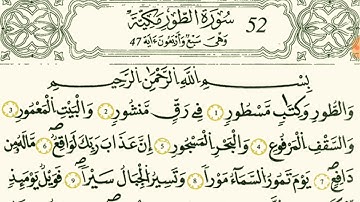 سُورَةُ الطُّورِ مَكِّيَّةٌ 52
وَهْىَ سَبْعٌ وَأَرْبَعُونَ ءَايَة 47
بِسْمِ اللَّهِ الرَّحْمَٰنِ الرَّحِيمِ
وَالطُّورِ وَكِتَابٍ مَّسْطُورٍ 1 فِي رَقٍّ مَّنْشُورٍ 2 وَالْبَيْتِ الْمَعْمُورِ 3
وَالسَّقْفِ الْمَرْفُوعِ 4 وَالْبَحْرِ الْمَسْجُورِ 5 إِنَّ عَذَابَ رَبِّكَ لَوَاقِعٌ 6 مَّا لَهُ مِن
دَافِعٍ 7 يَوْمَ تَمُورُ السَّمَاءُ مَوْرًا 8 وَتَسِيرُ الْجِبَالُ سَيْرًا 9 فَوَيْلٌ يَوْمَئِذٍ